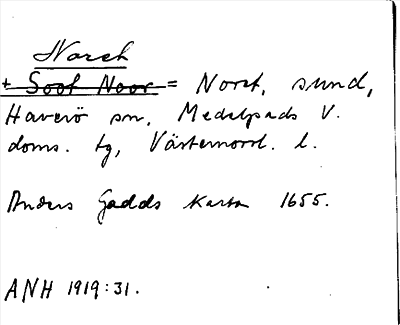 Noret
+ Soot Noor = Noret, sund,
Haverö sn, Medelpads V.
doms. tg, Västernorrl. l.
Anders Gadds karta 1655.
ANH 1919:31.